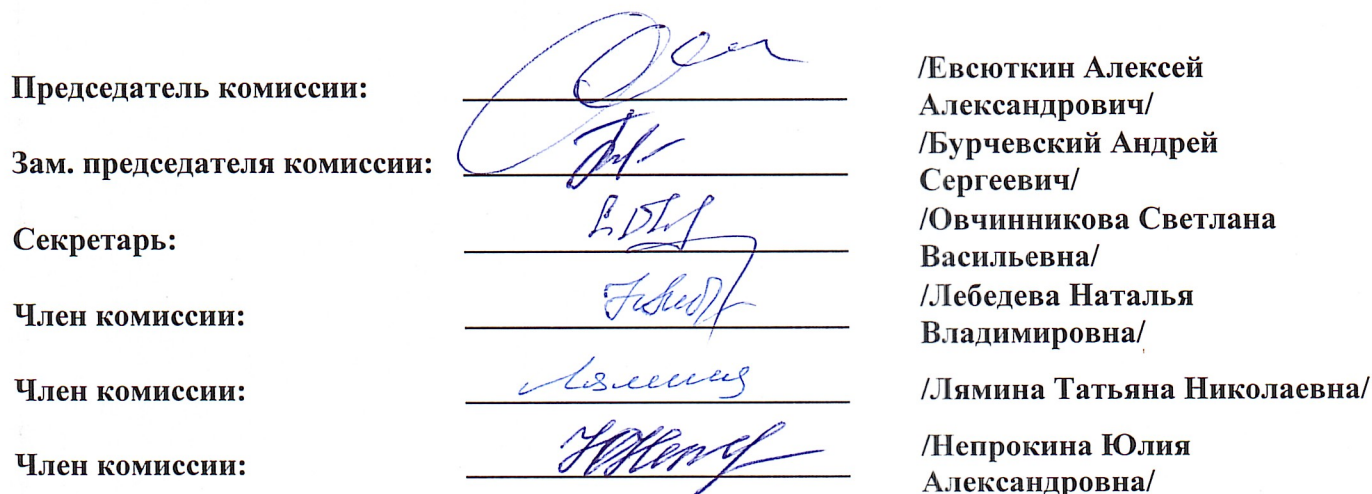 Председатель комиссии:
/Евсюткин Алексей
Александрович/
Зам. председателя комиссии:
/Бурчевский Андрей
Сергеевич/
Секретарь:
/Овчинникова Светлана
Васильевна/
Член комиссии:
/Лебедева Наталья
Владимировна/
Член комиссии:
Лямина
/Лямина Татьяна Николаевна/
Член комиссии:
/Непрокина Юлия
Александровна/